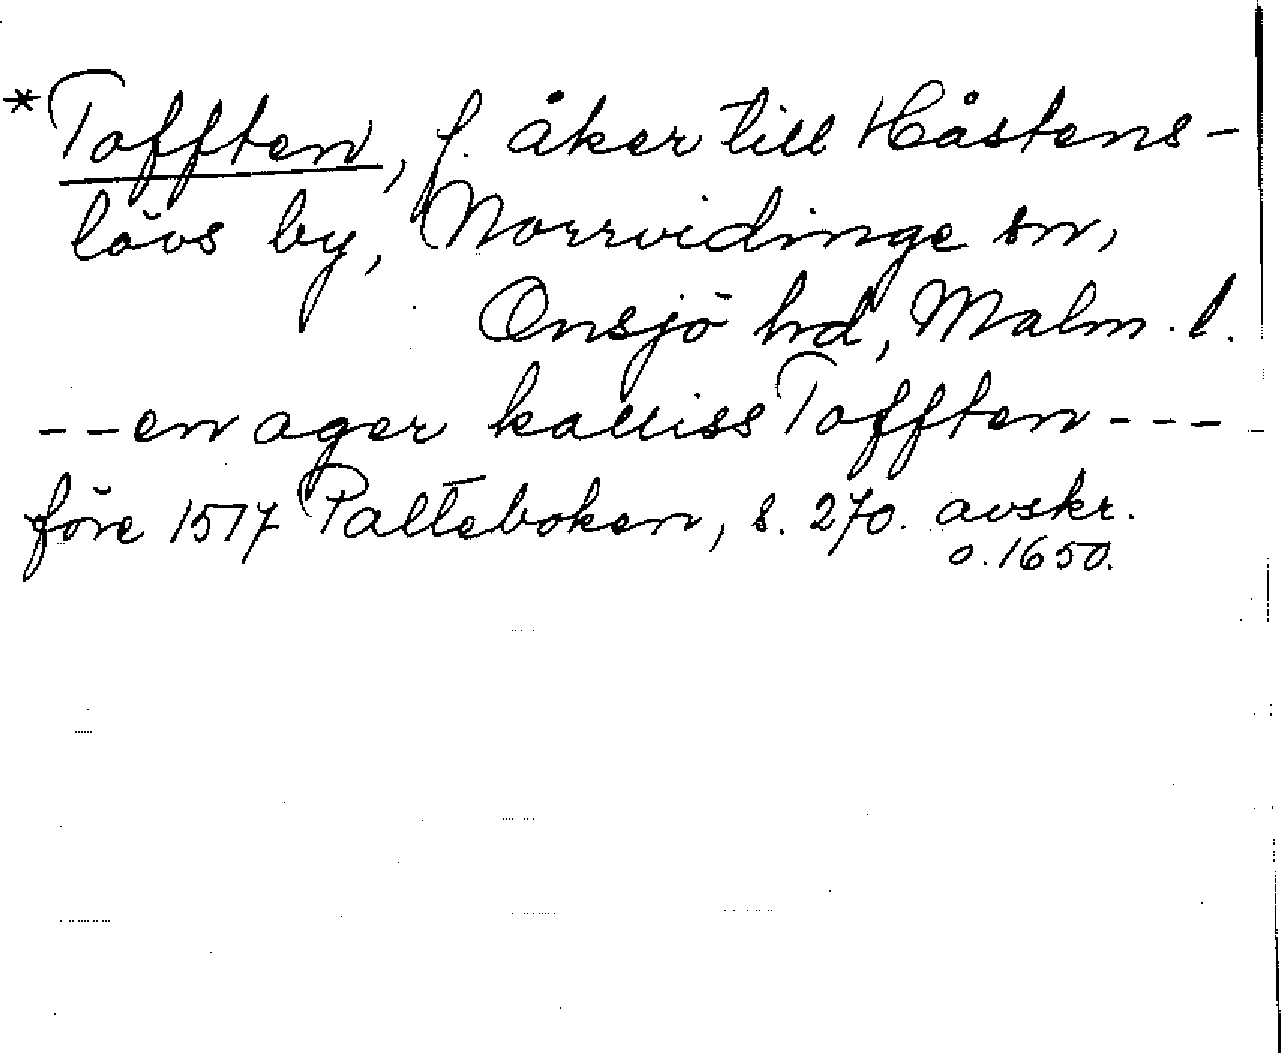 *Tofften, f. åker till Håstens-
lövs by, Norrvidinge sn,
Onsjö hd, Malm. l.
--en ager kalliss Tofften---
före 1517 Palteboken, s. 270. avskr.
o. 1650.